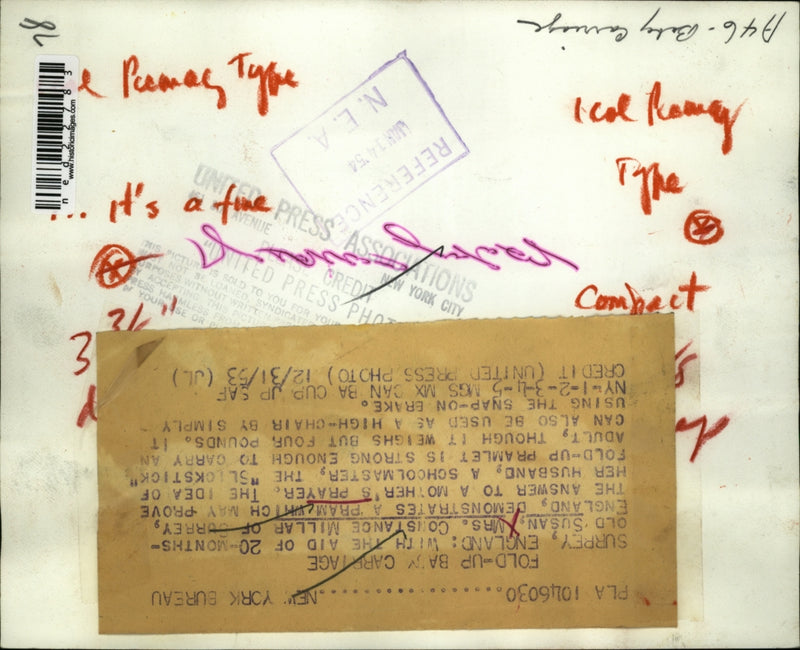 A46 - Baby Carriage
Pumag Type
1 col
Type
... it's a fine
Compact
3 3/6"
Baby Carriage
N. E. A.
MAR 24 '54
REFERENCE
UNITED PRESS ASSOCIATIONS
AVENUE
NEW YORK CITY
CREDIT
"UNITED PRESS PHOTO
THIS PICTURE IS SOLD TO YOU FOR YOUR
MUST NOT BE LOANED, SYNDICATED
PURPOSES WITHOUT WRITTEN
www.historicimages.com
ned22783
PLA 1046030....................NEW YORK BUREAU
FOLD-UP BABY CARRIAGE
SURREY, ENGLAND: WITH THE AID OF 20-MONTHS-
OLD SUSAN, MRS. CONSTANCE MILLAR OF SURREY,
ENGLAND, DEMONSTRATES A PRAM WHICH MAY PROVE
THE ANSWER TO A MOTHER'S PRAYER. THE IDEA OF
HER HUSBAND, A SCHOOLMASTER, THE "SLICKSTICK"
FOLD-UP PRAMLET IS STRONG ENOUGH TO CARRY AN
ADULT, THOUGH IT WEIGHS BUT FOUR POUNDS. IT
CAN ALSO BE USED AS A HIGH-CHAIR BY SIMPLY
USING THE SNAP-ON BRAKE.
NY-1-2-3-4-5 MGS MX CAN BA CUP JP SAF
CREDIT (UNITED PRESS PHOTO) 12/31/53 (JL)